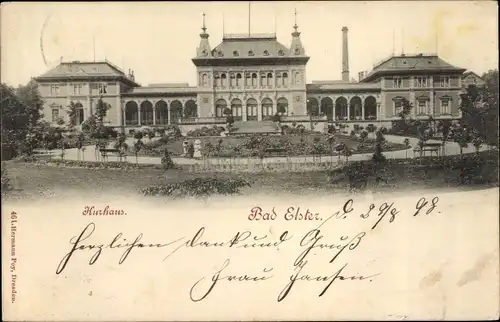 Kurhaus.
Bad Elster. d. 29/8 98.
Herzlichen Dank und Gruß
Frau
461. Hermann Poy, Dresden.